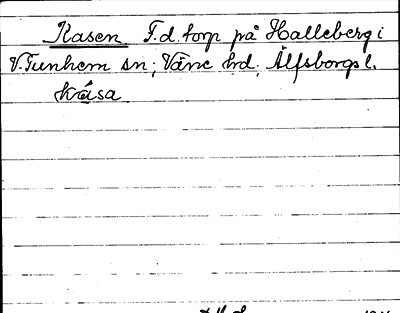 Kasen F.d. torp på Halleberg i
V. Tunhem sn;Väne hd; Älfsborgs l.
kråsa